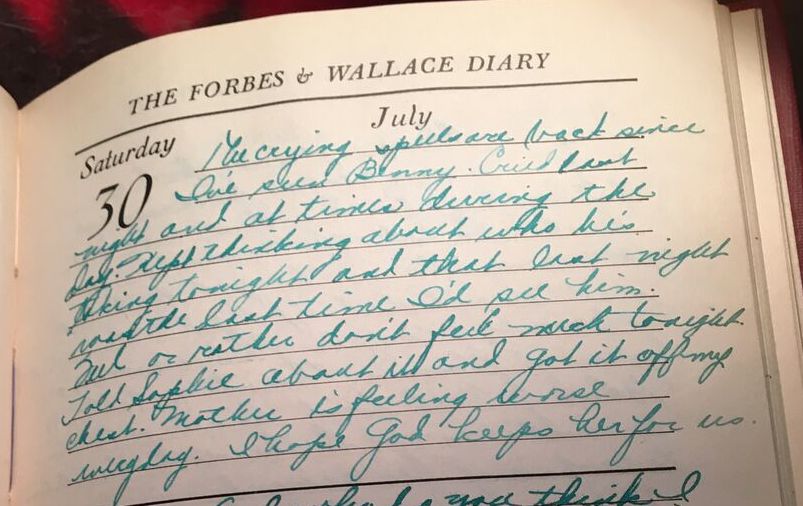 THE FORBES & WALLACE DIARY
July
Saturday
30
The crying spells are back since
I've seen Benny. Cried last
night and at times during the
day. Kept thinking about who his
taking tonight and that last night
was the last time I'd see him.
or rather don't feel much tonight.
Told Sophie about it and got it off my
chest. Mother is feeling worse
everyday. I hope God keeps her for us.
you think I